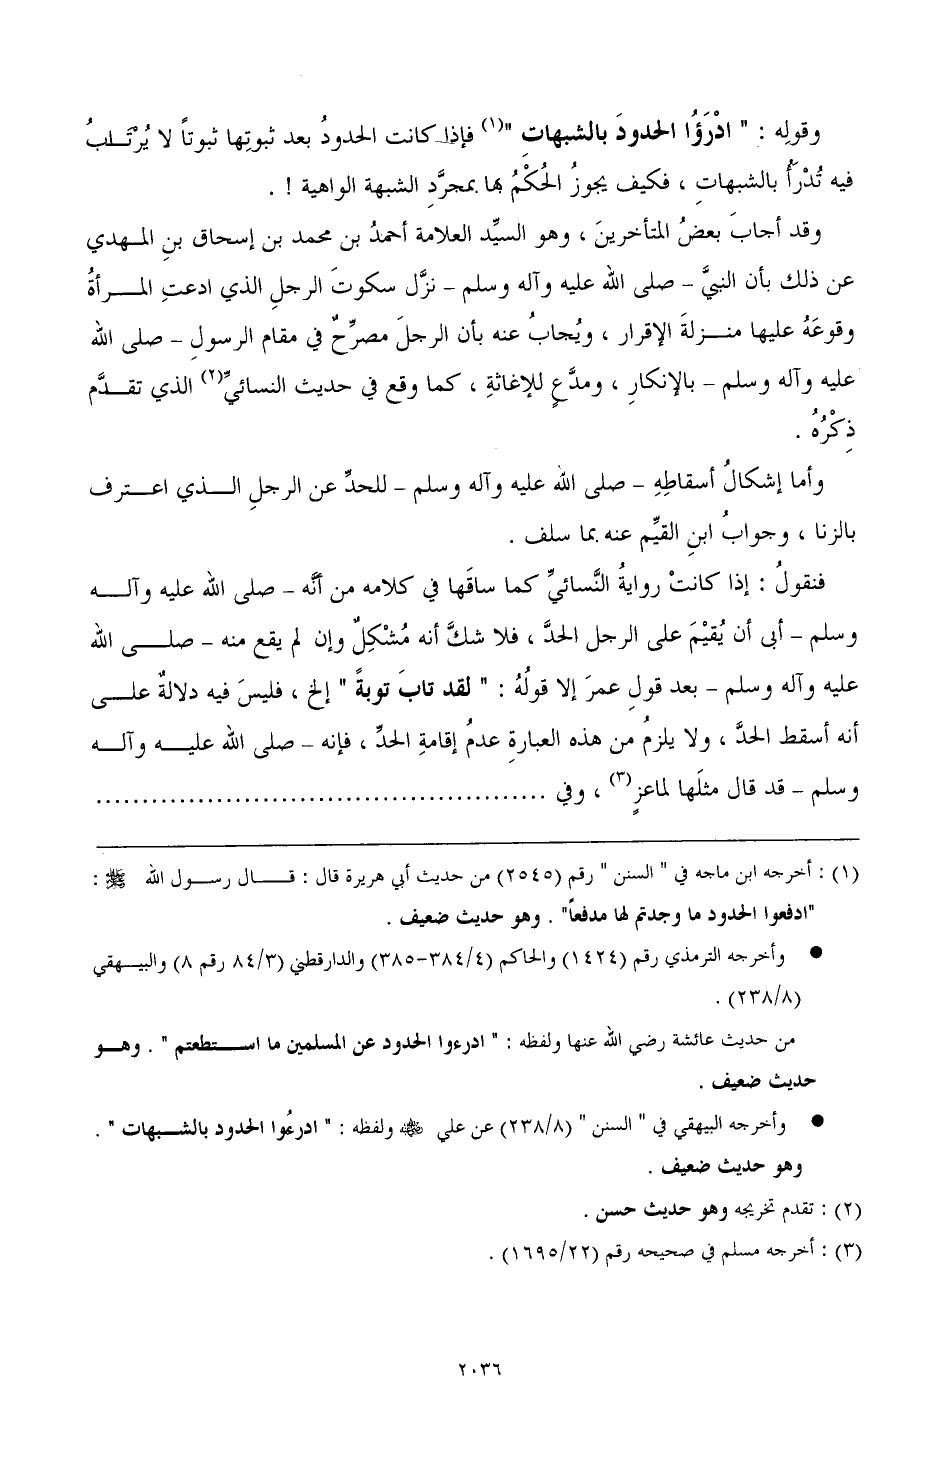 وقوله : " ادْرَؤُا الحدودَ بالشبهاتِ "(١) فإذا كانت الحدودُ بعد ثبوتِها ثبوتاً لا يُرْتَلبُ
فيه تُدْرَأُ بالشبهاتِ ، فكيف يجوزُ الحُكْمُ بها بمجرَّدِ الشبهة الواهية ! .
وقد أجابَ بعضُ المتأخرينَ ، وهو السيِّد العلامة أحمدُ بن محمد بن إسحاق بنِ المهدي
عن ذلك بأن النبيَّ - صلى الله عليه وآله وسلم - نزَّل سكوتَ الرجلِ الذي ادعتِ المرأةُ
وقوعَهُ عليها منزلةَ الإقرار ، ويُجابُ عنه بأن الرجلَ مصرِّحٌ في مقام الرسولِ - صلى الله
عليه وآله وسلم - بالإنكارِ ، ومدَّعٍ للإغاثةِ ، كما وقع في حديث النسائيِّ(٢) الذي تقدَّم
ذِكْرُهُ .
وأما إشكالُ أسقاطِهِ - صلى الله عليه وآله وسلم - للحدِّ عن الرجلِ الذي اعترف
بالزنا ، وجوابُ ابنِ القيِّم عنه بما سلف .
فنقولُ : إذا كانتْ روايةُ النَّسائيِّ كما ساقَها في كلامه من أنَّه - صلى الله عليه وآله
وسلم - أبى أن يُقيْمَ على الرجلِ الحدَّ ، فلا شكَّ أنه مُشْكِلٌ وإن لم يقع منه - صلى الله
عليه وآله وسلم - بعد قولِ عمرَ إلا قولُهُ : " لقد تابَ توبةً " إلخ ، فليسَ فيه دلالةٌ على
أنه أسقط الحدَّ ، ولا يلزمُ من هذه العبارةِ عدمُ إقامةِ الحدِّ ، فإنه - صلى الله عليه وآله
وسلم - قد قال مثلَها لماعزٍ(٣) ، وفي ................................................
(١) : أخرجه ابن ماجه في " السنن " رقم (٢٥٤٥) من حديث أبي هريرة قال : قال رسول الله ﷺ :
"ادفعوا الحدود ما وجدتم لها مدفعاً" . وهو حديث ضعيف .
● وأخرجه الترمذي رقم (١٤٢٤) والحاكم (٣٨٤/٤-٣٨٥) والدارقطني (٨٤/٣ رقم ٨) والبيهقي
(٢٣٨/٨) .
من حديث عائشة رضي الله عنها ولفظه : " ادرءوا الحدود عن المسلمين ما استطعتم " . وهو
حديث ضعيف .
● وأخرجه البيهقي في " السنن " (٢٣٨/٨) عن علي ولفظه : " ادرءُوا الحدود بالشبهات " .
وهو حديث ضعيف .
(٢) : تقدم تخريجه وهو حديث حسن .
(٣) : أخرجه مسلم في صحيحه رقم (١٦٩٥/٢٢) .
٢٠٣٦